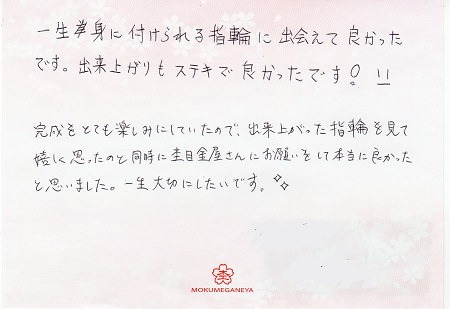 一生挙身に付けられる指輪に出会えて良かった
です。出来上がりもステキで良かったです!!!
完成をとても楽しみにしていたので、出来上がった指輪を見て
嬉しく思ったのと同時に杢目金屋さんにお願いをして本当に良かった
と思いました。一生大切にしたいです。
杢
MOKUMEGANEYA